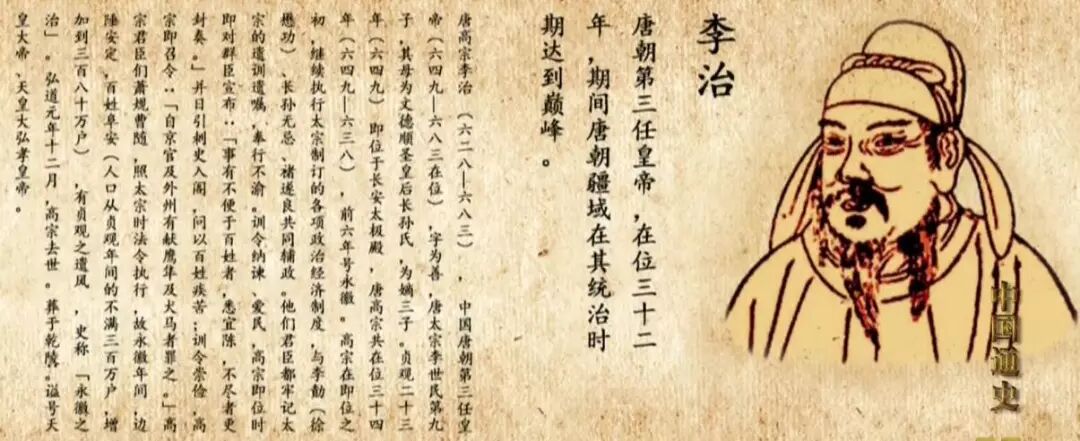 中国通史
李治
唐朝第三任皇帝，在位三十二
年，期间唐朝疆域在其统治时
期达到巅峰。
唐高宗李治（六二八—六八三），中国唐朝第三任皇
帝（六四九—六八三在位），字为善，唐太宗李世民第九
子，其母为文德顺圣皇后长孙氏，为嫡三子。贞观二十三
年（六四九）即位于长安太极殿，唐高宗共在位三十四
年（六四九—六三八），前六年号永徽。高宗在即位之
初，继续执行太宗制订的各项政治经济制度，与李勣（徐
懋功）、长孙无忌、褚遂良共同辅政。他们君臣都牢记太
宗的遗训遗嘱，奉行不渝。训令纳谏、爱民，高宗即位时
即对群臣宣布：「事有不便于百姓者，悉宜陈，不尽者更
封奏。」并日引刺史入阁，问以百姓疾苦；训令崇俭，高
宗即召令：「自京官及外州有献鹰隼及犬马者罪之。」高
宗君臣们萧规曹随，照太宗时法令执行，故永徽年间，边
陲安定，百姓阜安（人口从贞观年间的不满三百万户，增
加到三百八十万户），有贞观之遗风，史称「永徽之
治」。弘道元年十二月，高宗去世。葬于乾陵。谥号天
皇大帝、天皇大弘孝皇帝。